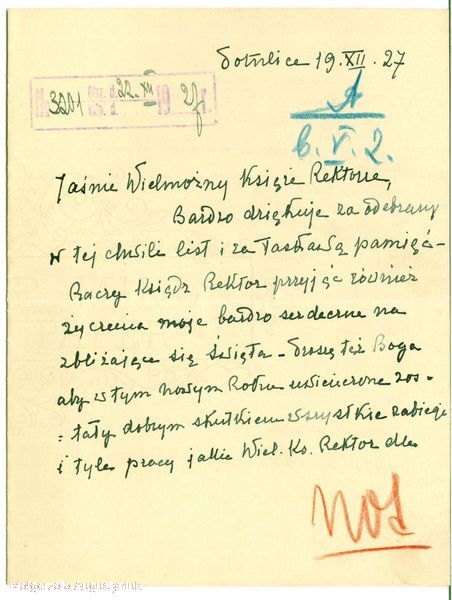 19.XII.27
3201 22.XII 19 27 r.
A
b. V. 2.
Jaśnie Wielmożny Księże Rektorze,
Bardzo dziękuję za odebrany
w tej chwili list i za łaskawą pamięć -
Raczy Ksiądz Rektor przyjąć również
życzenia moje bardzo serdeczne na
zbliżające się święta - Proszę też Boga
aby w tym nowym Roku uwieńczone zos-
- tały dobrym skutkiem wszystkie zabiegi
i tyle pracy jakie Wiel. Ks. Rektor dla